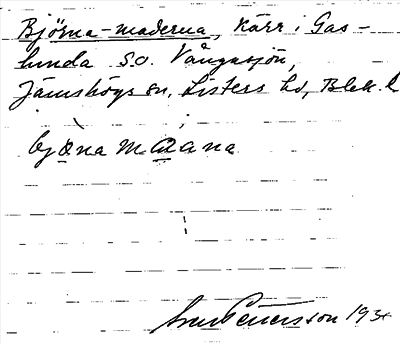 Björna-maderna, Kärr i Gas-
lunda S.O. Vångasjön,
Jämshögs sn, Listers hd, Blek. l
bjäna maana
Pettersson 193